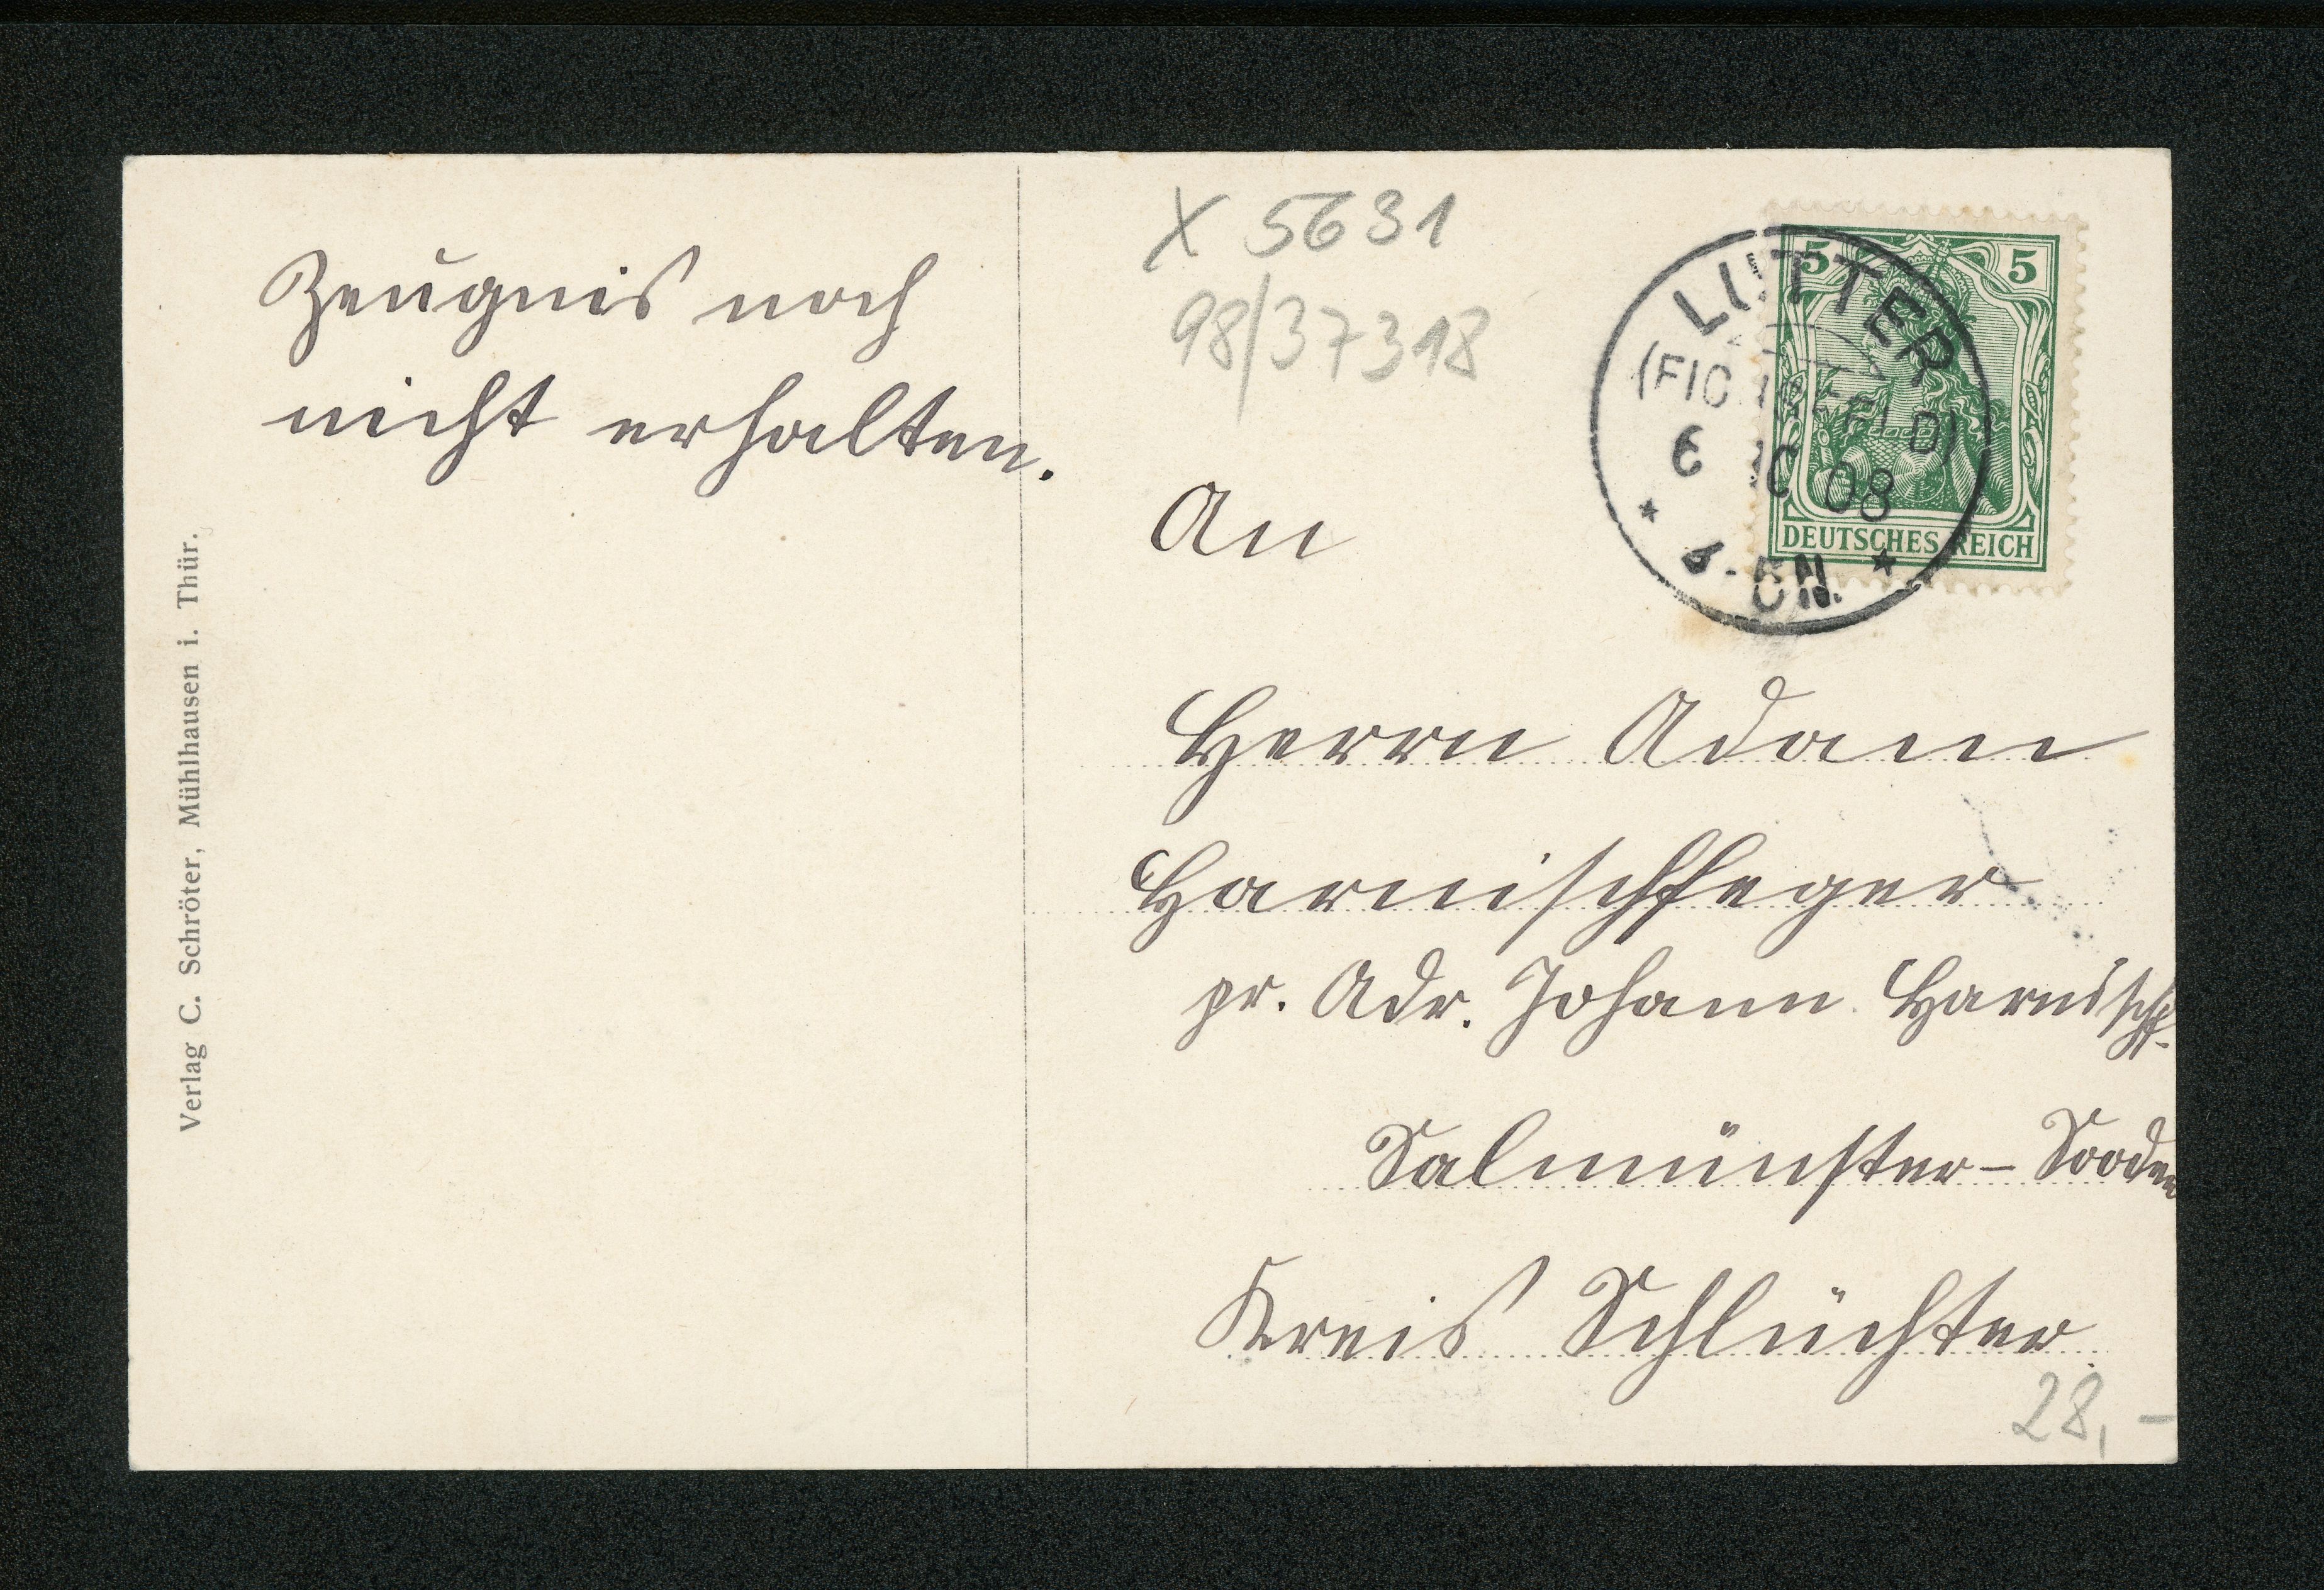 Zeugnis noch
nicht erhalten.
Verlag C. Schröter, Mühlhausen i. Thür.
X 5631
98/37318
5 5
DEUTSCHES REICH
LUTTER
(EICHSFELD)
6 10 08
5N.
An
Herrn Adam
Harnischfeger
pr. Adr. Johann Harnischf.
Salmünster-Sooden
Kreis Schlüchter
28,-